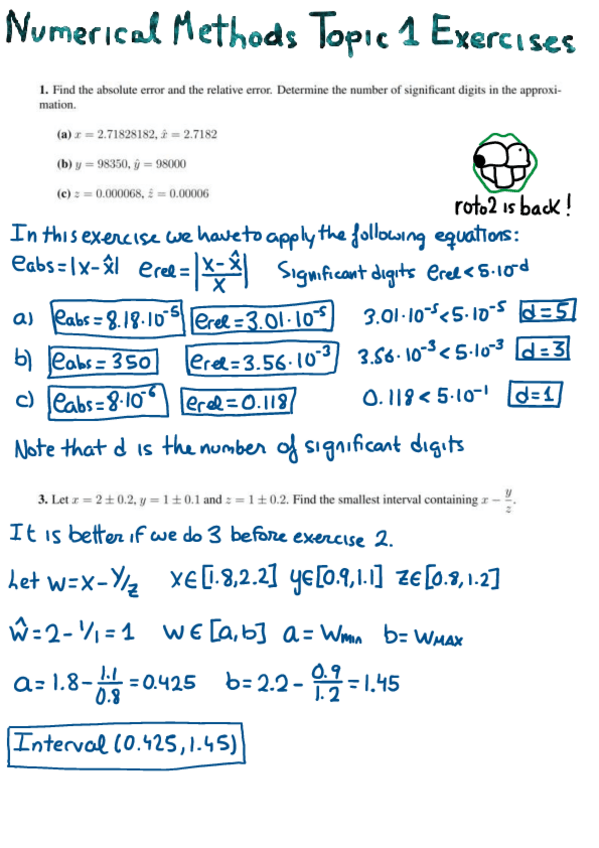 Numerical Methods Topic 1 Exercises
1. Find the absolute error and the relative error. Determine the number of significant digits in the approxi-
mation.
(a) x = 2.71828182, x̂ = 2.7182
(b) y = 98350, ŷ = 98000
(c) z = 0.000068, ẑ = 0.00006
roto2 is back!
In this exercise we have to apply the following equations:
eabs=|x-x̂| erel=|x-x̂/x| Significant digits erel<5·10^-d
a) eabs=8.18·10^-5 erel=3.01·10^-5 3.01·10^-5<5·10^-5 d=5
b) eabs=350 erel=3.56·10^-3 3.56·10^-3<5·10^-3 d=3
c) eabs=8·10^-6 erel=0.118 0.118<5·10^-1 d=1
Note that d is the number of significant digits
3. Let x = 2 ± 0.2, y = 1 ± 0.1 and z = 1 ± 0.2. Find the smallest interval containing x − y/z.
It is better if we do 3 before exercise 2.
Let w=x-y/z x∈[1.8,2.2] y∈[0.9,1.1] z∈[0.8,1.2]
ŵ=2-1/1=1 w∈[a,b] a=wmin b=wmax
a=1.8-1.1/0.8=0.425 b=2.2-0.9/1.2=1.45
Interval (0.425,1.45)